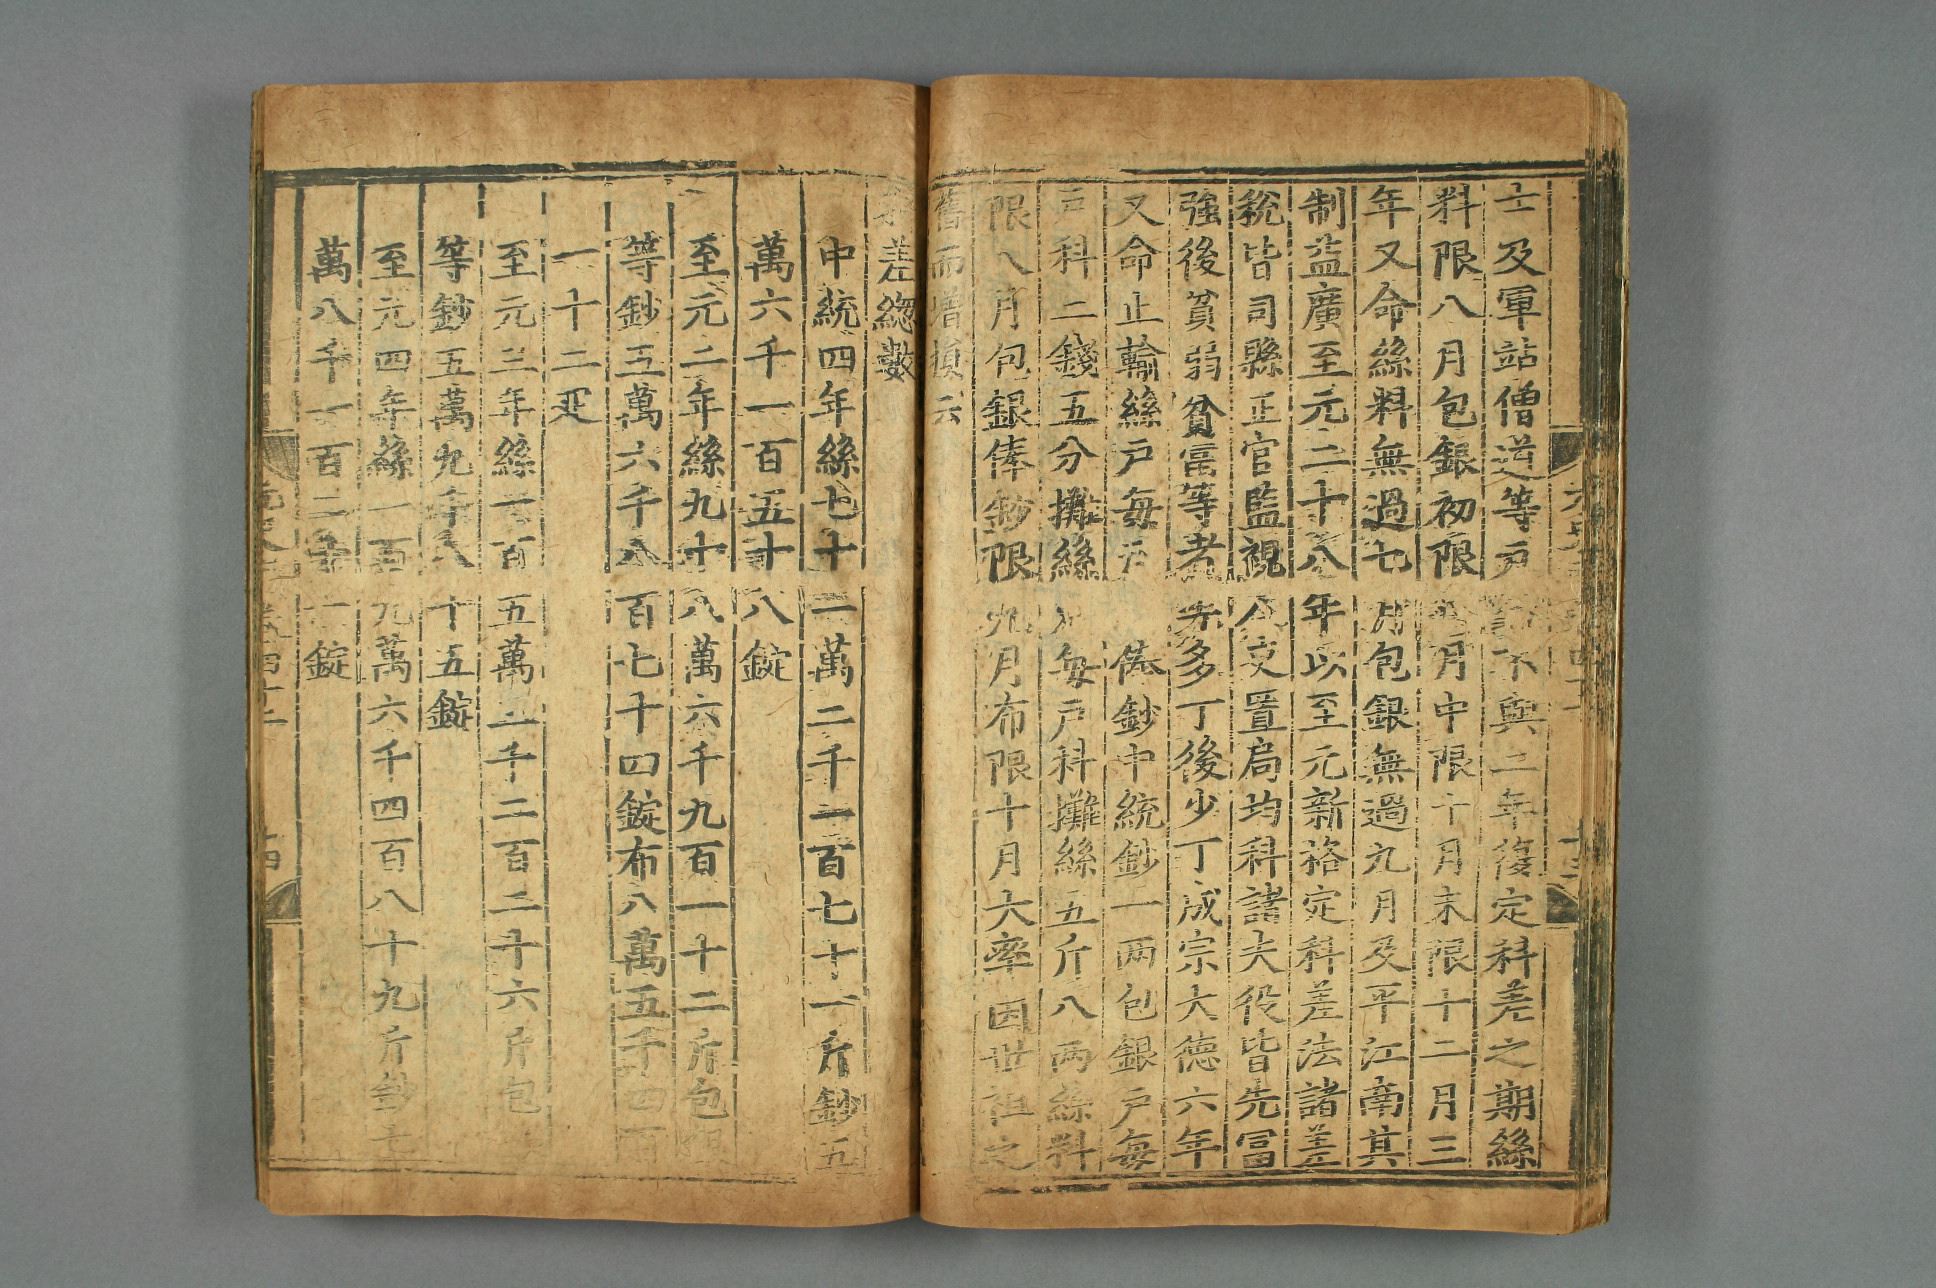 士及軍站僧道等戶不與二年復定科差之期絲
料限八月包銀初限八月中限十月末限十二月三
年又命絲料無過七月包銀無過九月及平江南其
制益廣至元二十八年以至元新格定科差法諸差
稅皆司縣正官監視人吏置局均科諸夫役皆先富
強後貧弱貧富等者先多丁後少丁成宗大德六年
又命止輸絲戶每戶俸鈔中統鈔一兩包銀戶每
戶科二錢五分攤絲戶每戶科攤絲五斤八兩絲料
限八月包銀俸鈔限九月布限十月大率因世祖之
舊而增損云
科差總數
中統四年絲七十一萬二千一百七十一斤鈔五
萬六千一百五十八錠
至元二年絲九十八萬六千九百一十二斤包銀
等鈔五萬六千八百七十四錠布八萬五千四百
一十二疋
至元三年絲一百五萬三千二百二十六斤包
等鈔五萬九千八十五錠
至元四年絲一百九萬六千四百八十九斤鈔七
萬八千一百二十一錠
元史 志卷四十二
十三
元史 志卷四十二
十四